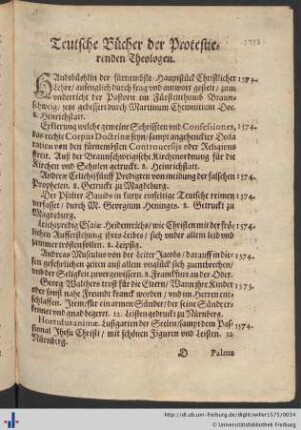 Teutsche Bücher der Protestie-
renden Theologen.
HAndtbüchlin der fürnembste Hauptstück Christlicher 1574.
Lehre/ anfenglich durch frag vnd antwort gestelt/ zum
vnderricht der Pastorn im Fürstenthumb Braun-
schweig/ jetz gebessert durch Martinum Chemnitium Doc.
8. Heinrichstatt.
Erklerung welche gemeine Schrifften vnd Confessiones, 1574.
das rechte Corpus Doctrinæ seyn/ sampt angehenckter Decla
ration von den fürnembsten Controuersijs oder Religions
streit. Auß der Braunschweigische Kirchenordnung für die
Kirchen vnd Scholen getruckt. 8. Heinrichstatt.
Andreæ Celichij fünff Predigten vom meidung der falschen 1574.
Propheten. 8. Getruckt zu Magdeburg.
Der Psalter Dauids in kurtze einfeltige Teutsche reimen 1574.
verfasset/ durch M. Georgium Heninges. 8. Getruckt zu
Magdeburg.
Leichpredig Heidenreichs/ wie Christen mit der frö- 1574.
lichen Aufferstehung ihres Leibes/ sich vnder allem leid vnd
jammer trösten sollen. 8. Leiptzig.
Andreas Musculus von der Leiter Jacobs/ darauff in die- 1574.
sen geschwinden zeiten auß allem vnglück sich zuentbrechen/
vnd der Seligkeit zuvergewissern. 8. Franckfurt an der Oder.
Georg Walthers trost für die Eltern/ Wann ihre Kinder 1575.
oder sonst nahe Freundt kranck worden/ vnd im Herren ent-
schlaffen. Item/ für ein armen Sünder/ der seine Sünd er-
kennet vnd gnad begeret. 12. Leisten gedruckt zu Nürnberg.
Hortulus animæ. Lustgarten der Seelen/ sampt dem Pas- 1574.
sional Jhesu Christi/ mit schönen Figuren vnd Leisten. 12.
Nürnberg.
D Palma
http://dl.ub.uni-freiburg.de/diglit/willer1575/0034
© Universitätsbibliothek Freiburg